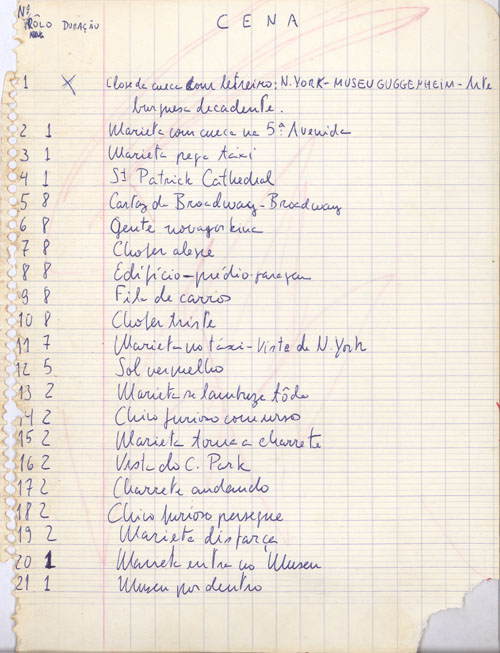 Nº RÔLO DURAÇÃO CENA
1 X Close da cueca com letreiro: N. YORK - MUSEU GUGGENHEIM - Arte
burguesa decadente.
2 1 Marieta com cueca na 5ª Avenida
3 1 Marieta pega táxi
4 1 St Patrick Cathedral
5 8 Cartaz de Broadway - Broadway
6 8 Gente novayorkina
7 8 Chofer alegre
8 8 Edifício - prédio - garagem
9 8 Fila de carros
10 8 Chofer triste
11 7 Marieta no táxi - Vista de N. York
12 5 Sol vermelho
13 2 Marieta se lambuza tôda
14 2 Chico furioso com urso
15 2 Marieta toma a charrete
16 2 Vista do C. Park
17 2 Charrete andando
18 2 Chico furioso persegue
19 2 Marieta disfarça
20 1 Marieta entra no Museu
21 1 Museu por dentro